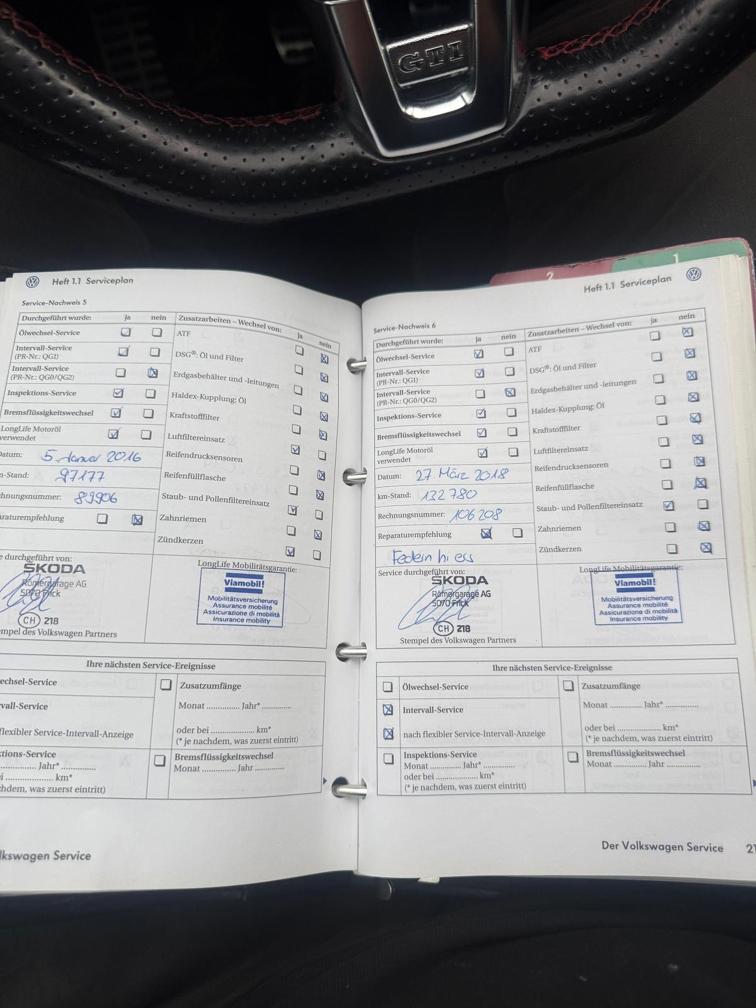 GTI
Heft 1.1 Serviceplan
Service-Nachweis 5
Durchgeführt wurde:
ja
nein
Ölwechsel-Service
Intervall-Service
(PR-Nr.: QG1)
Intervall-Service
(PR-Nr.: QG0/QG2)
Inspektions-Service
Bremsflüssigkeitswechsel
LongLife Motoröl
verwendet
atum: 5. Januar 2016
m-Stand: 97177
chnungsnummer: 89906
araturempfehlung
Zusatzarbeiten – Wechsel von:
ja
nein
ATF
DSG®: Öl und Filter
Erdgasbehälter und -leitungen
Haldex-Kupplung: Öl
Kraftstofffilter
Luftfiltereinsatz
Reifendrucksensoren
Reifenfüllflasche
Staub- und Pollenfiltereinsatz
Zahnriemen
Zündkerzen
e durchgeführt von:
ŠKODA
Römergarage AG
5070 Frick
CH 218
empel des Volkswagen Partners
LongLife Mobilitätsgarantie:
Viamobil!
Mobilitätsversicherung
Assurance mobilité
Assicurazione di mobilità
Insurance mobility
Ihre nächsten Service-Ereignisse
echsel-Service
vall-Service
flexibler Service-Intervall-Anzeige
tions-Service
Jahr*
km*
hdem, was zuerst eintritt)
Zusatzumfänge
Monat ............. Jahr* .............
oder bei ................ km*
(* je nachdem, was zuerst eintritt)
Bremsflüssigkeitswechsel
Monat ............. Jahr .............
lkswagen Service
2
1
Heft 1.1 Serviceplan
Service-Nachweis 6
Durchgeführt wurde:
ja
nein
Ölwechsel-Service
Intervall-Service
(PR-Nr.: QG1)
Intervall-Service
(PR-Nr.: QG0/QG2)
Inspektions-Service
Bremsflüssigkeitswechsel
LongLife Motoröl
verwendet
Datum: 27. März 2018
km-Stand: 132780
Rechnungsnummer: 106208
Reparaturempfehlung
Zusatzarbeiten – Wechsel von:
ja
nein
ATF
DSG®: Öl und Filter
Erdgasbehälter und -leitungen
Haldex-Kupplung: Öl
Kraftstofffilter
Luftfiltereinsatz
Reifendrucksensoren
Reifenfüllflasche
Staub- und Pollenfiltereinsatz
Zahnriemen
Zündkerzen
Service durchgeführt von:
ŠKODA
Römergarage AG
5070 Frick
CH 218
Stempel des Volkswagen Partners
LongLife Mobilitätsgarantie:
Viamobil!
Mobilitätsversicherung
Assurance mobilité
Assicurazione di mobilità
Insurance mobility
Ihre nächsten Service-Ereignisse
Ölwechsel-Service
Intervall-Service
nach flexibler Service-Intervall-Anzeige
Inspektions-Service
Monat ............. Jahr* .............
oder bei ................ km*
(* je nachdem, was zuerst eintritt)
Zusatzumfänge
Monat ............. Jahr* .............
oder bei ................ km*
(* je nachdem, was zuerst eintritt)
Bremsflüssigkeitswechsel
Monat ............. Jahr .............
Der Volkswagen Service
21